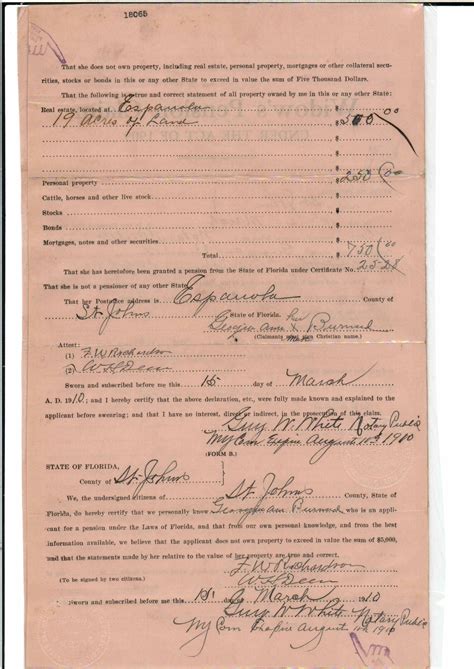 18065
That she does not own property, including real estate, personal property, mortgages or other collateral secur-
ities, stocks or bonds in this or any other State to exceed in value the sum of Five Thousand Dollars.
That the following is a true and correct statement of all property owned by me in this or any other State:
Real estate, located at Espanola $500 00
19 acres of Land $
$
$
$
Personal property $250 00
Cattle, horses and other live stock $
Stocks $
Bonds $
Mortgages, notes and other securities $
Total $750 00
That she has heretofore been granted a pension from the State of Florida under Certificate No. 2528
That she is not a pensioner of any other State.
That her Postoffice address is Espanola County of
St Johns State of Florida.
Georgia Ann X her mark
(Claimants sign own Christian name.)
Attest:
(1) F. W Richardson
(2) W H Deen
Sworn and subscribed before me this 15 day of March
A. D. 1910; and I hereby certify that the above declaration, etc., were fully made known and explained to the
applicant before swearing; and that I have no interest, direct or indirect, in the prosecution of this claim.
Guy W White Notary Public
My Com Expire August 1910
(FORM B.)
STATE OF FLORIDA,
County of St Johns
We, the undersigned citizens of St Johns County, State of
Florida, do hereby certify that we personally know Georgia Ann who is an appli-
cant for a pension under the Laws of Florida, and that from our own personal knowledge, and from the best
information available, we believe that the applicant does not own property to exceed in value the sum of $5,000,
and that the statements made by her relative to the value of her property are true and correct.
F. W Richardson
W H Deen
(To be signed by two citizens.)
Sworn and subscribed before me this 15 March 1910
Guy W White Notary Public
My Com Expire August 1910